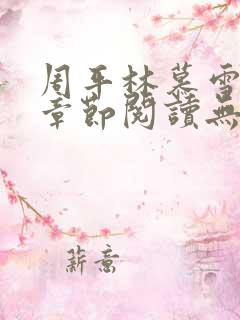 周平林慕雪
章節閱讀無
薪意